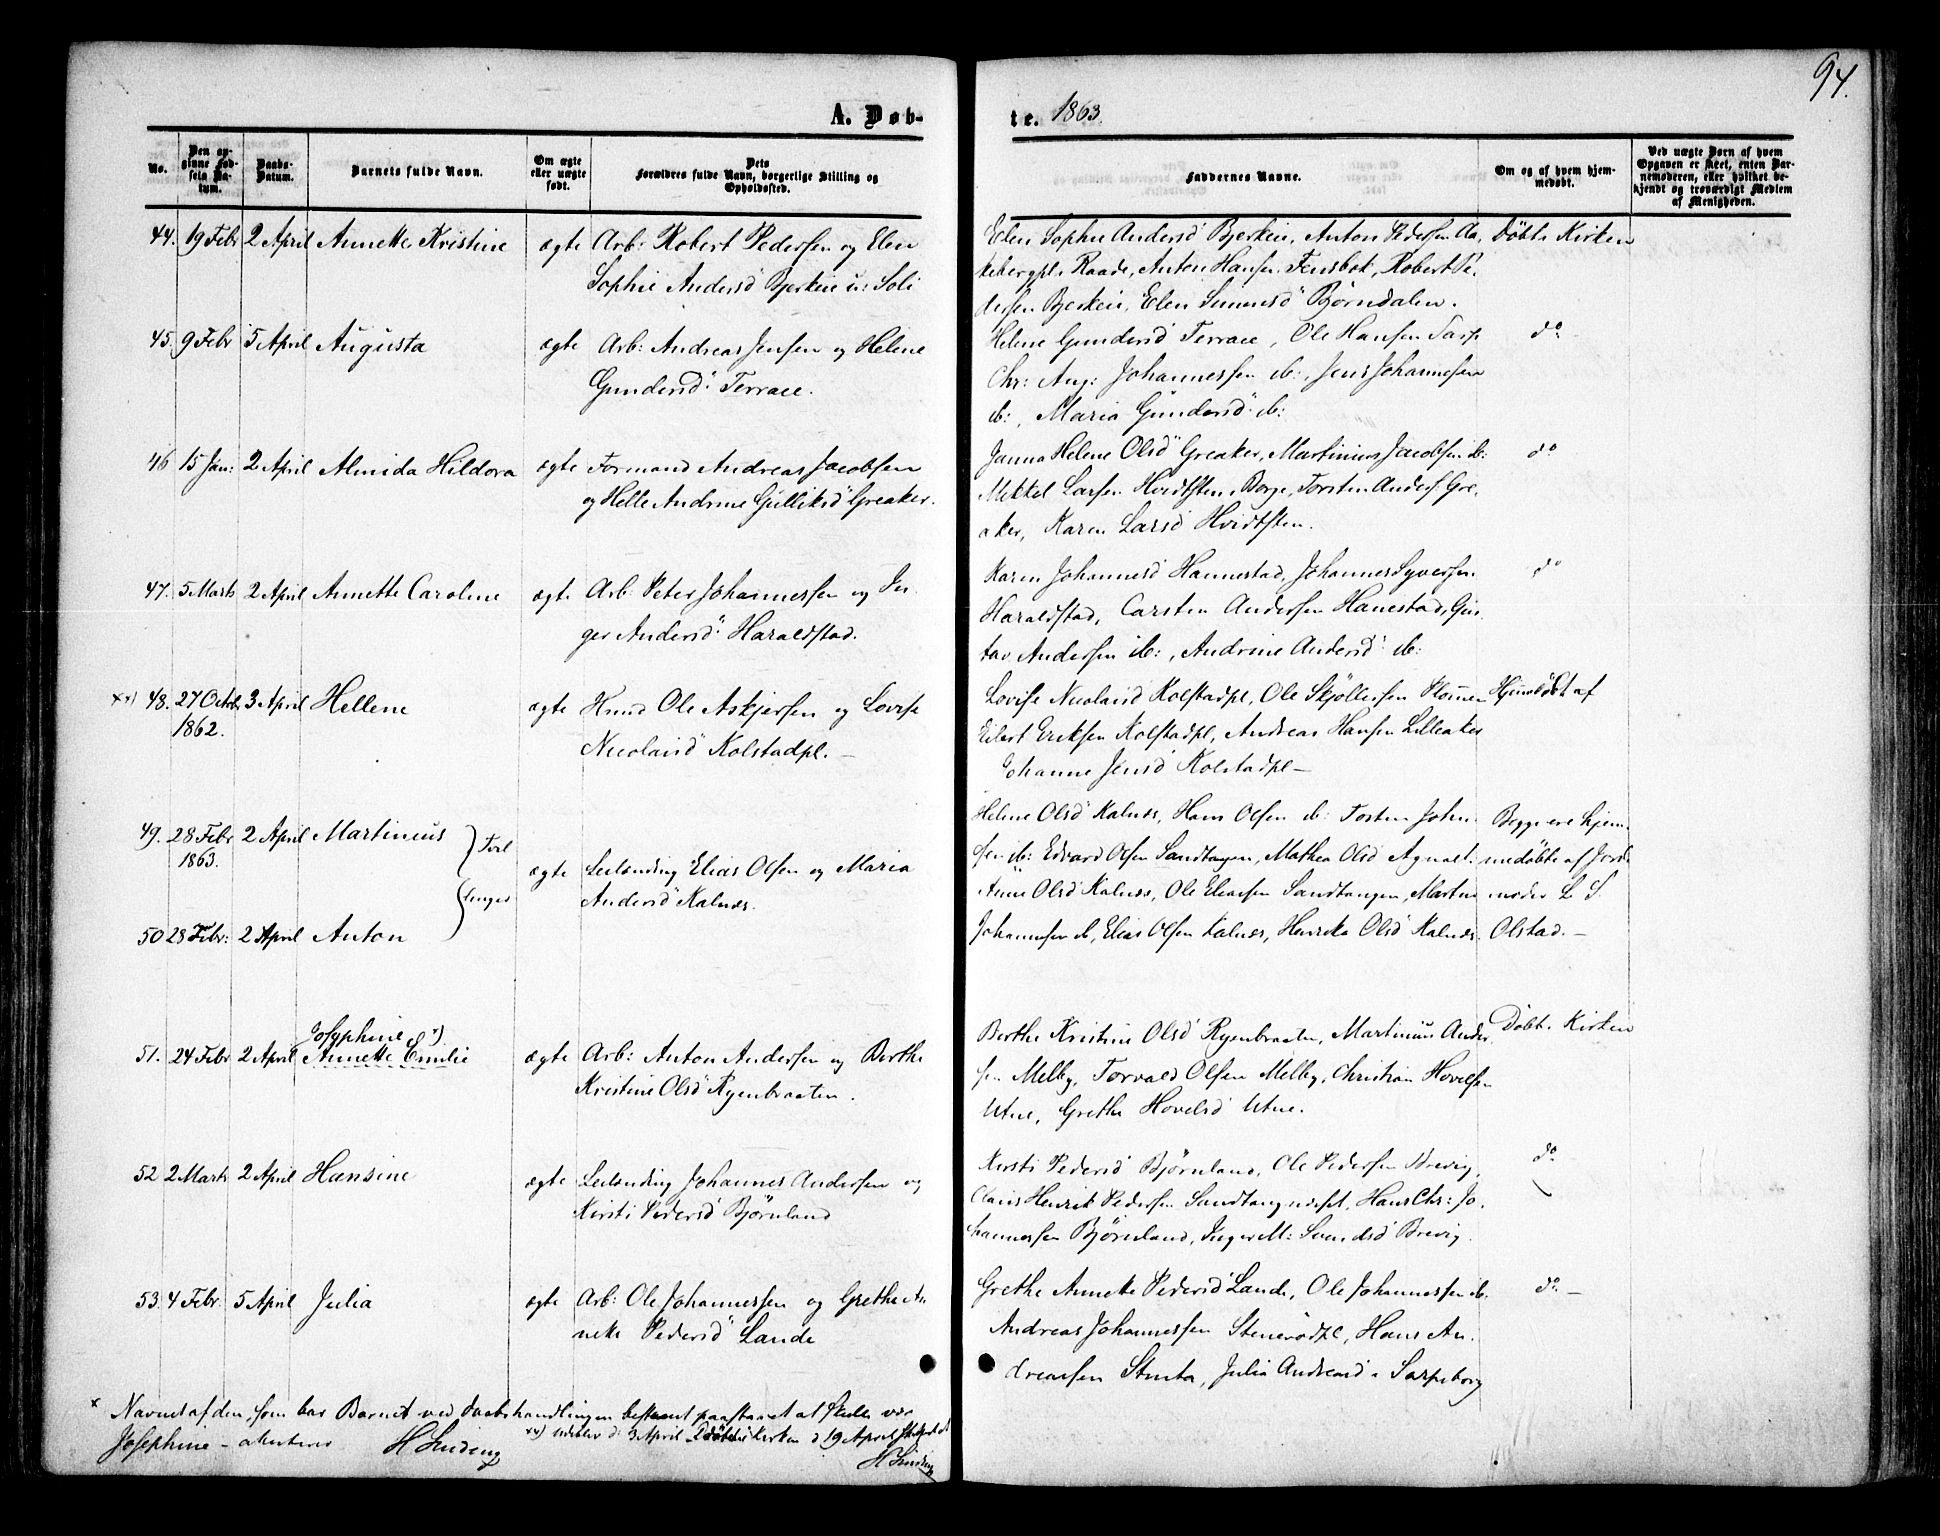 94.
A. Døb-
te. 1863.
No.
Den op-
ginne Fød-
sels Da-
tum.
Daabs-
Datum.
Barnets fulde Navn.
Om ægte
eller uægte
født.
Dets
Forældres fulde Navn, borgerlige Stilling og
Opholdssted.
Faddernes Navne.
Om og af hvem hjem-
medøbt.
Ved uægte Børn af hvem
Opgaven er skeet, enten Bar-
nemoderen, eller hvilket be-
kjendt og troværdigt Medlem
af Menigheden.
44. 19 Febr 2 April Annette Kristine ægte Arb: Robert Pedersen og Elen
Sophie Andersd Bjerkeii Soli
Elen Sophie Andersd Bjerkeii, Anton Pedersen Aa-
kebergpl. Raade, Anton Hansen Tensbok, Robert Pe-
dersen Bjerkeii, Elen Simensd Bjørndalen.
Døbt i Kirken
45. 9 Febr 5 April Augusta ægte Arb: Andreas Jensen og Helene
Gundersd Terrace.
Helene Gundersd Terrace, Ole Hansen Tarp
Chr: Aug: Johannessen ib:, Jens Johannesen
ib:, Maria Gundersd ib:
do
46 15 Jan: 2 April Almida Hildora ægte Formand Andreas Jacobsen
og Helle Andrine Gulliksd Greaker.
Janna Helene Olsd Greaker, Martinius Jacobsen ib:
Mekkel Larsen Hvidtsten, Borge, Torsten Anders. Gre-
aker, Karen Larsd Hvidtsten.
do
47. 5 Marts 2 April Annette Caroline ægte Arb: Peter Johannessen og In-
ger Andersd Haraldstad.
Karen Johannesd Hannestad, Johannes Syversen
Haraldstad, Carsten Andersen Hanestad, Gus-
tav Andersen ib:, Andrine Andersd ib:
do
xx) 48. 27 Octbr 3 April Hellene ægte Knud Ole Askjersen og Lovise
1862.
Nicolaisd Kolstadpl. —
Lovise Nicolaisd Kolstadpl, Ole Skjøllersen
Eilert Eriksen Kolstadpl, Andreas Hansen Lilleaker
Johanne Jensd Kolstadpl —
Hjemdøbt af
49. 28 Febr 2 April Martinius
1863.
Tvil
linger
ægte Leilænding Elias Olsen og Maria
Andersd Kalnæs.
50 28 Febr: 2 April Anton
Helene Olsd Kalnæs, Hans Olsen ib: Torsten John-
sen ib: Edvard Olsen Sandtangen, Mathea Olsd Agnalt:
Anne Olsd Kalnæs, Ole Eliassen Sandtangen, Martin
Johannesen ib, Elias Olsen Kalnæs, Henrikke Olsd Kalnæs.
Begge ere hjem-
medøbte af Jorde-
moder L S.
Olstad. —
Josephine x).
51. 24 Febr 2 April Annette Emilie ægte Arb: Anton Andersen og Berthe
Kristine Olsd Ryenbraaten.
Berthe Kristine Olsd Ryenbraaten, Martinius Ander-
sen Melby, Torvald Olsen Melby, Christian Hovelsen
Utne, Grethe Hovelsd Utne.
Døbt i Kirken
52 2 Marts 2 April Hansine ægte Leilænding Johannes Andersen og
Kirsti Pedersd Bjørnland
Kirsti Pedersd Bjørnland, Ole Pedersen Brevig,
Claus Henrik Pedersen Sandtangen, Hans Chr: Jo-
hannessen Bjørnland, Inger M: Svendsd Brevig.
do
53. 4 Febr. 5 April Julia ægte Arb: Ole Johannessen og Grethe An-
neke Pedersd Lande
Grethe Anneke Pedersd Lande, Ole Johannessen ib.
Andreas Johannessen Stenerødpl, Hans An-
dreassen Stenta, Julia Andreasd Sarpsborg
do —
x Navnet af den, som bar Barnet ved Daabshandlingen bestemt paastaaet at skulle være
Josephine — atesteres H Linding
xx) udeblev d: 3 April. Døbt i Kirken d 19 April
H Linding